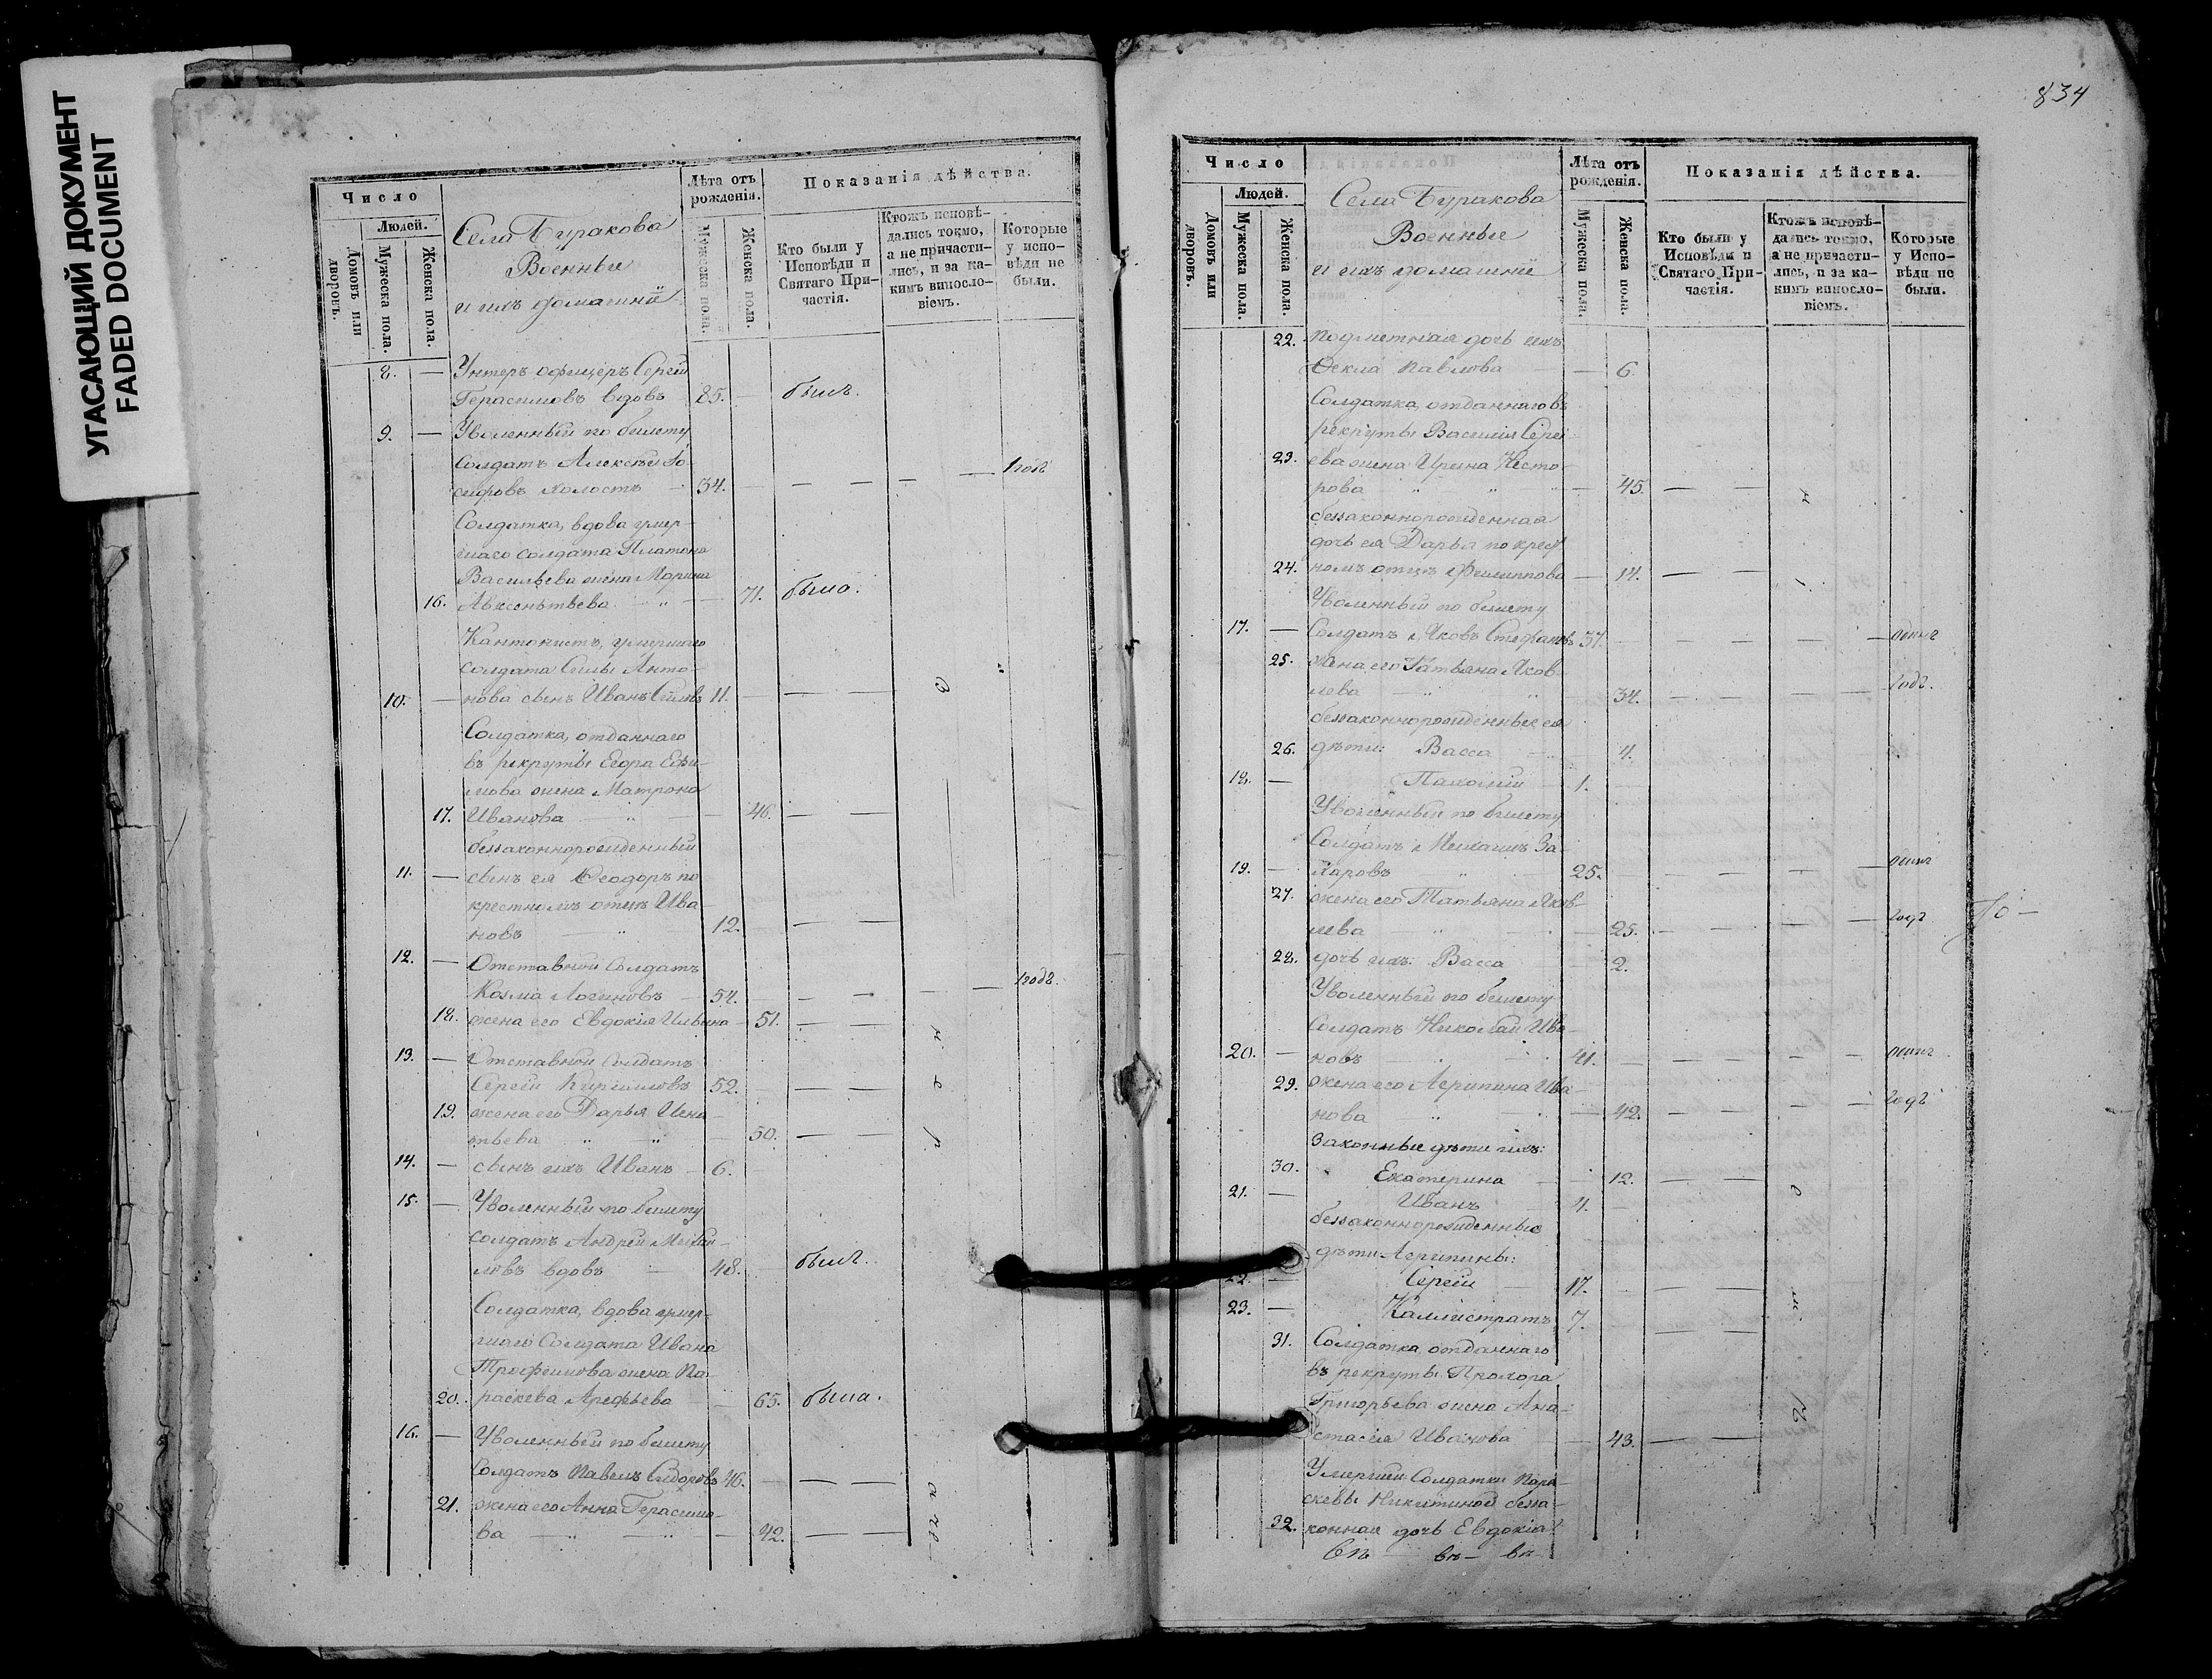 УГАСАЮЩИЙ ДОКУМЕНТ
FADED DOCUMENT
Число
Людей.
Домовъ или дворовъ.
Мужеска пола.
Женска пола.
Села Буракова
Военные
и ихъ домашніи
Лѣта отъ рожденія.
Мужеска пола.
Женска пола.
Показанія дѣйства.
Кто были у Исповѣди и Святаго Причастія.
Ктожъ исповѣдались токмо, а не причастились, и за какимъ винословіемъ.
Которые у исповѣди не были.
8. — Унтеръ офицеръ Сергій
Герасимовъ вдовъ 85. — былъ.
9. — Уволенный по билету
солдатъ Алексѣй Іо-
сифовъ холостъ 34. — — — — —
Солдатка, вдова умер-
шаго солдата Платона
Васильева жена Марина
16. Авксентьева — „ — 71. была.
Кантонистъ, умершаго
солдата Силы Анто-
10. — нова сынъ Иванъ Силовъ 11. — — —
Солдатка, отданнаго
въ рекруты Егора Ефи-
мова жена Матрона
17. Иванова — „ — 46. — —
беззаконнорожденный
11. — сынъ ея Ѳеодоръ по
крестномъ отцѣ Ива-
новъ — „ — 12. — — —
12. — Отставной солдатъ
Козма Логиновъ — 54. — — — — —
18. жена его Евдокія Ильина — 51. — —
13. — Отставной солдатъ
Сергій Кирилловъ 52. — — —
19. жена его Дарья Игна-
тьева „ — „ — 50. — —
14. — сынъ ихъ Иванъ — 6. —
15. — Уволенный по билету
солдатъ Андрей Михай-
ловъ вдовъ — 48. — былъ.
Солдатка, вдова умер-
шаго Солдата Ивана
Трофимова жена Па-
20. раскева Арефьева — 65. была.
16. — Уволенный по билету
Солдатъ Павелъ Сидоровъ 46. — — —
21. жена его Анна Герасимо-
ва — „ — „ — 42. — —
834
Число
Людей.
Домовъ или дворовъ.
Мужеска пола.
Женска пола.
Села Буракова
Военные
и ихъ домашніи
Лѣта отъ рожденія.
Мужеска пола.
Женска пола.
Показанія дѣйства.
Кто были у Исповѣди и Святаго Причастія.
Ктожъ исповѣдались токмо, а не причастились, и за какимъ винословіемъ.
Которые у Исповѣди не были.
22. подметная дочь ихъ
Ѳекла Павлова — 6.
Солдатка, отданнаго въ
рекруты Василія Сергѣ-
23. ева жена Ирина Несто-
рова „ „ — 45. — —
беззаконнорожденная
дочь ея Дарья по крест
24. номъ отцѣ Филиппова — 14. — —
Уволенный по билету
17. — Солдатъ Яковъ Стефановъ 37. — — — — —
25. жена его Татьяна Яков-
лева „ „ 34. — — — — годъ.
беззаконнорожденные ея
26. дѣти: Васса — 4.
18. — Пахомій 1. —
Уволенный по билету
Солдатъ Михаилъ За-
19. — харовъ — „ 25. — — — —
27. жена его Татьяна Яков-
лева — „ — 25. — — — — годъ
28. дочь ихъ: Васса — 2.
Уволенный по билету
Солдатъ Николай Ива-
20. — новъ — „ 41. — — — — —
29. жена его Агрипина Ива-
нова — „ — 42. — — — — годъ
Законные дѣти ихъ:
30. Екатерина — 12. — —
21. — Иванъ 4. —
беззаконнорожденные
дѣти Агрипины:
22. — Сергій — 17. —
23. — Каллистратъ 7. — — —
31. Солдатка отданнаго
въ рекруты Прохора
Григорьева жена Ана-
стасія Иванова — 43. — —
Умершей Солдатки Пара-
скевы Никитиной безза-
32. конная дочь Евдокія